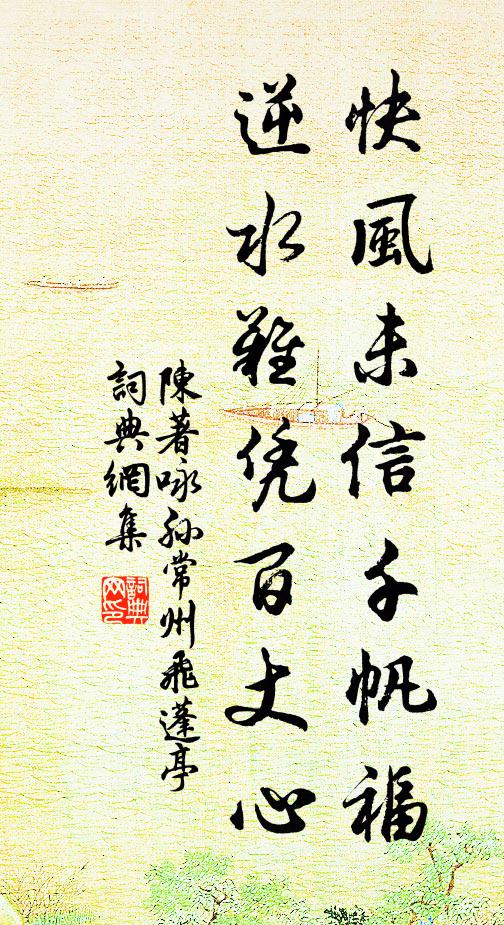 快風未信千帆福
逆水難凭百丈心
陳著咏孙常州飛蓬亭
詞典網集
詞典網印